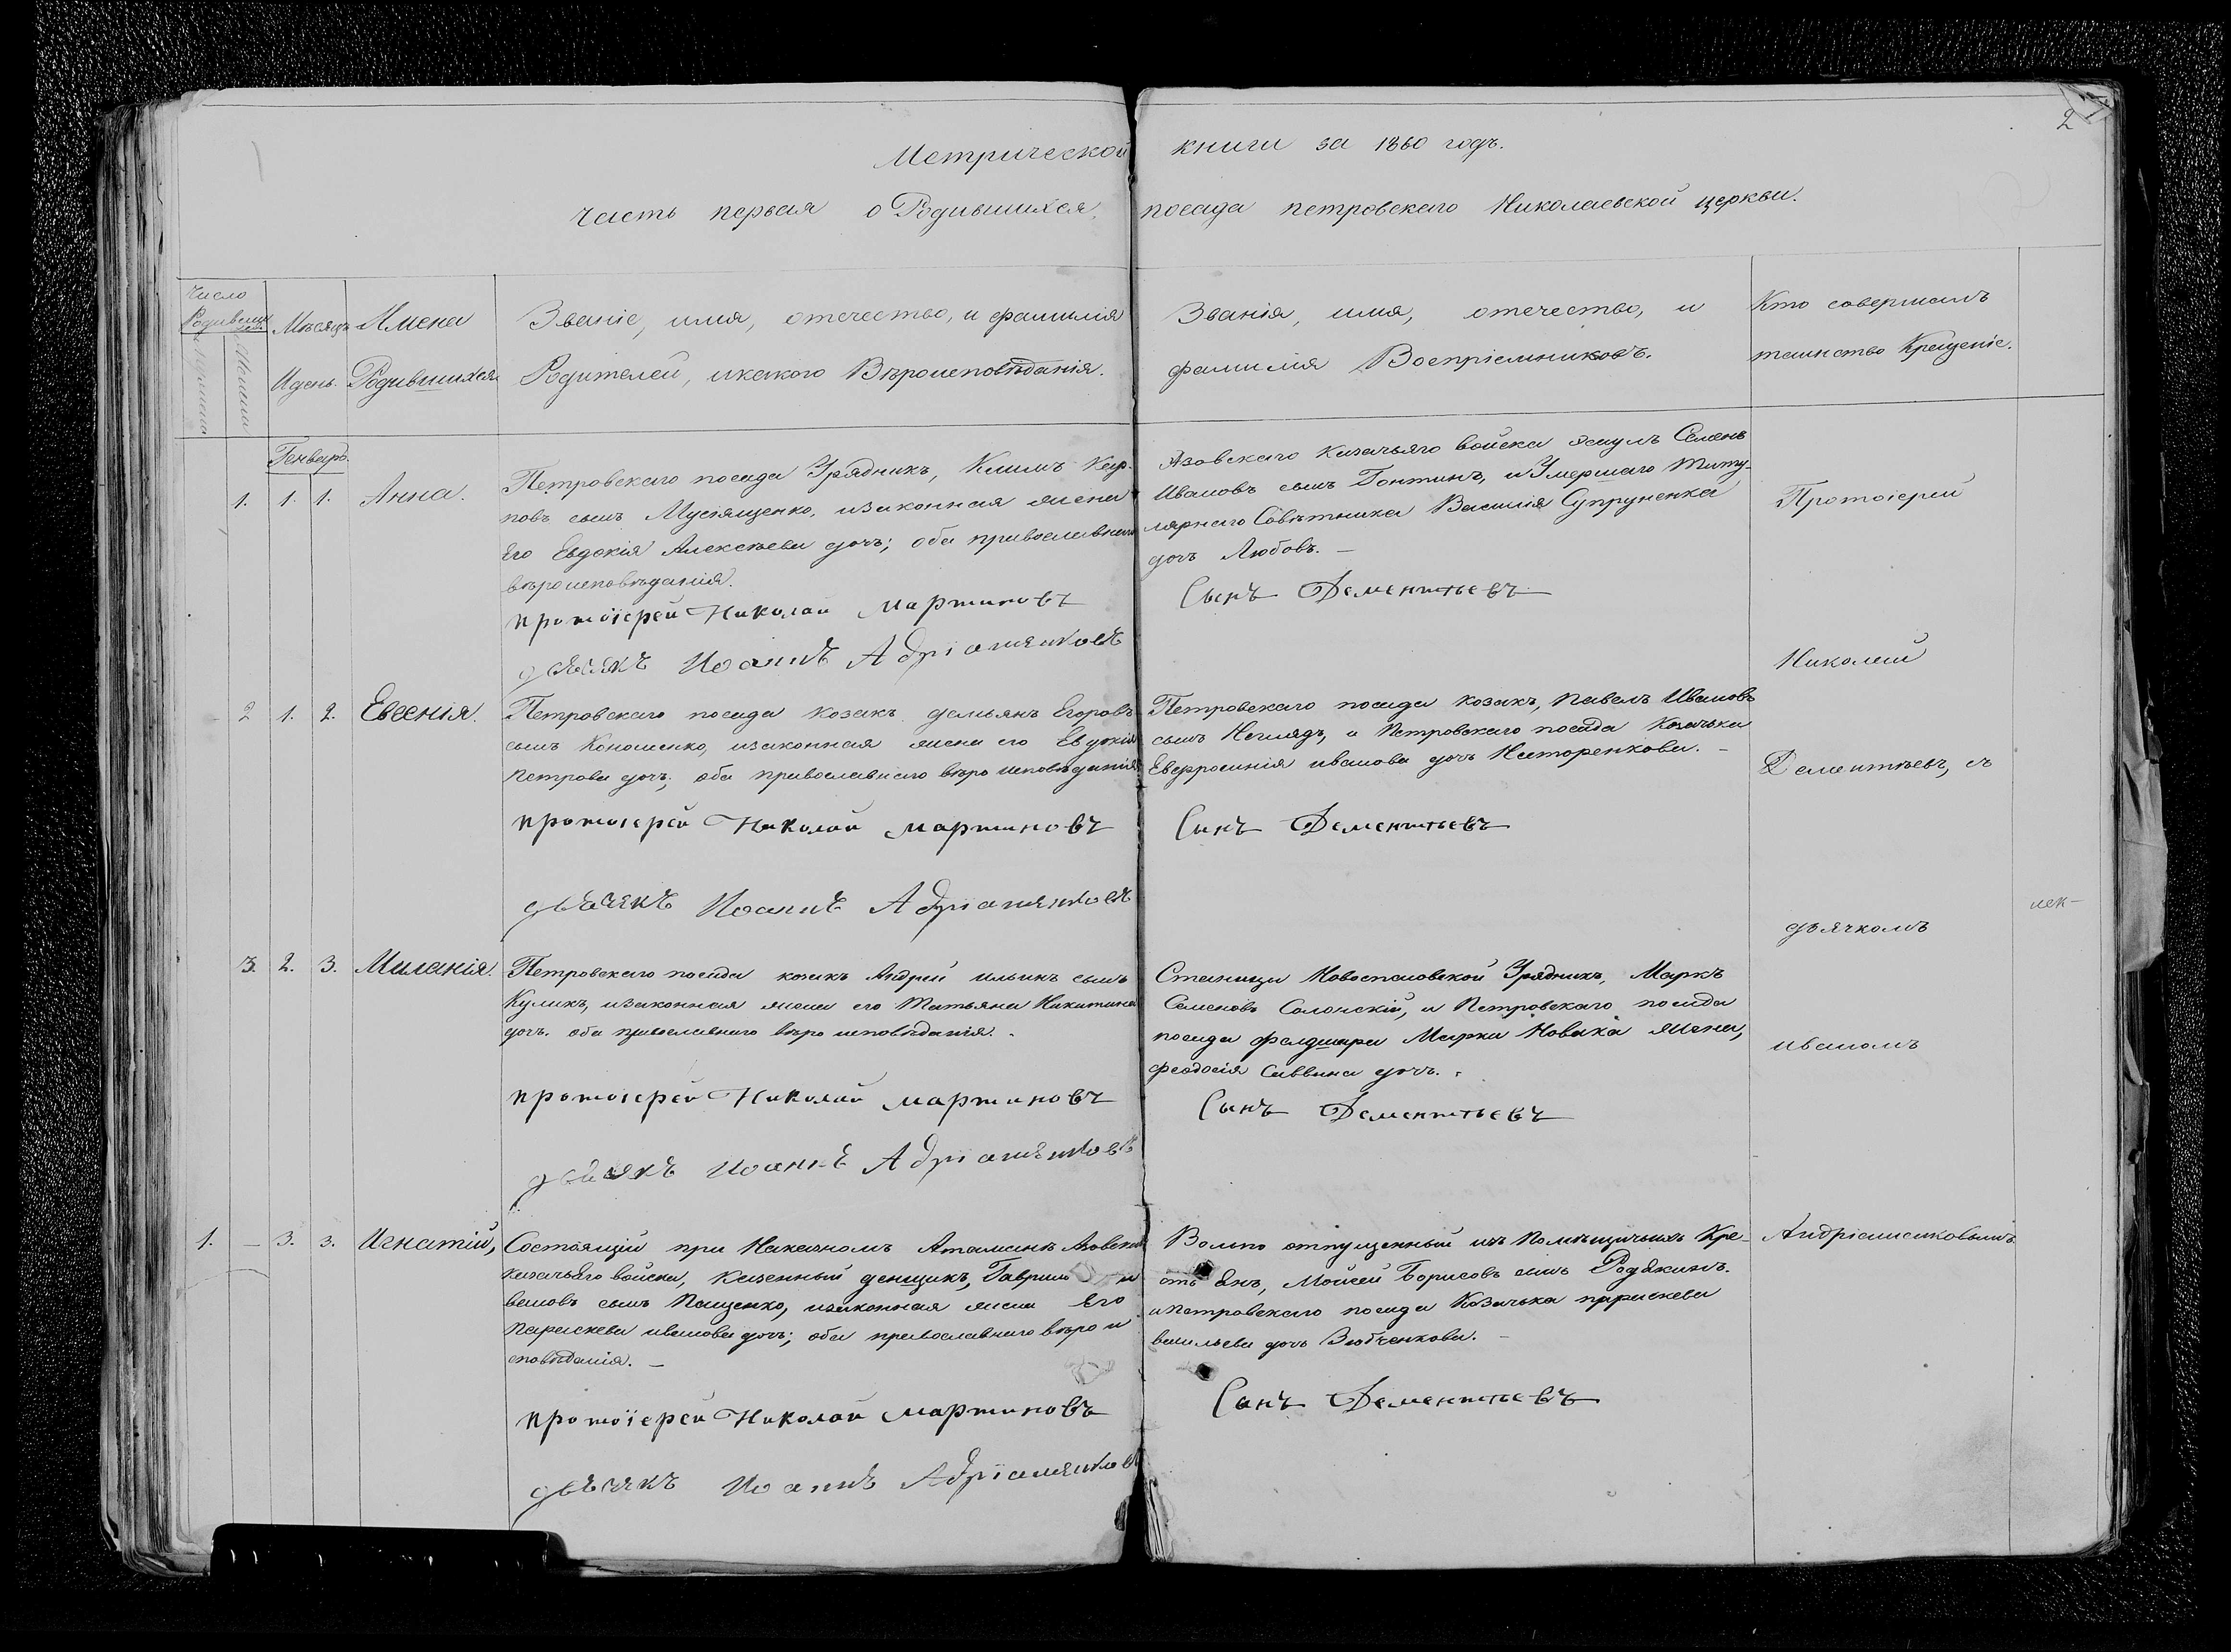 2
Метрической книги за 1860 годъ.
часть первая о Родившихся посада петровскаго Николаевской церкви.
Число Родивших ся
Мужеска
Женска
Мѣсяцъ
И день.
Имена
Родившихся
Званіе, имя, отечество, и фамилія
Родителей, и какого Вѣроисповѣданія.
Званія, имя, отечество, и
фамилія Воспріемниковъ.
Кто совершалъ
таинство Крещеніе.
Генваръ.
1. 1. 1. Анна.
Петровскаго посада Урядникъ, Климъ Кар-
повъ сынъ Мусіященко, изаконная жена
Его Евдокія Алексѣева дочъ; оба православнаго
вѣроисповѣданія.
протоіерей Николай Мартиновъ
дьячекъ Иоаннъ Адріаненковъ
Азовскаго казачьяго войска эсаулъ Семенъ
Ивановъ сынъ Гонтинъ, и Умершаго Титу-
лярнаго Совѣтника Василія Супруненка
дочъ Любовъ. –
Сынъ Дементьевъ
Протоіерей
Николай
Дементьевъ, съ
дьячкомъ
иваномъ
Андріаненковымъ
2 1. 2. Евгенія.
Петровскаго посада козакъ демьянъ Егоровъ
сынъ Кономенко, изаконная жена его Евдокія
петрова дочъ; оба православнаго вѣро исповѣданія
протоіерей Николай мартиновъ
дьячекъ Иоаннъ Адріаненковъ
Петровскаго посада козакъ, павелъ Ивановъ
сынъ Неглядъ, и Петровскаго посада Казачька
Евфросинія иванова дочъ Нисторенкова. –
Сынъ Дементьевъ
3. 2. 3. Миланія.
Петровскаго посада козакъ Андрей ильинъ сынъ
Куликъ, изаконная жена его Татьяна Никитина
дочъ. оба православнаго вѣро исповѣданія. –
протоіерей Николай мартиновъ
дьячекъ Иоаннъ Адріаненковъ
Станицы Новоспасовской Урядникъ, Маркъ
Семеновъ Солонскій, и Петровскаго посада
посада фелдшара Марка Новака жена,
феодосія Саввина дочъ. –
Сынъ Дементьевъ
1. – 3. 3. Игнатій,
Состоящій при Наказномъ Атаманѣ Азовскаго
казачьяго войска, казенный денщикъ, Гаврило И
вановъ сынъ Пащенко, изаконная жена Его
Параскева иванова дочъ; оба православнаго вѣро и
сповѣданія. –
протоіерей Николай мартиновъ
дьячекъ Иоаннъ Адріаненковъ
Волно отпущенный изъ Помѣщичьихъ Кре-
стьянъ, Мойсей Борисовъ сынъ Родякинъ.
и петровскаго посада Казачька параскева
васильева дочъ Зюбченкова. –
Сынъ Дементьевъ